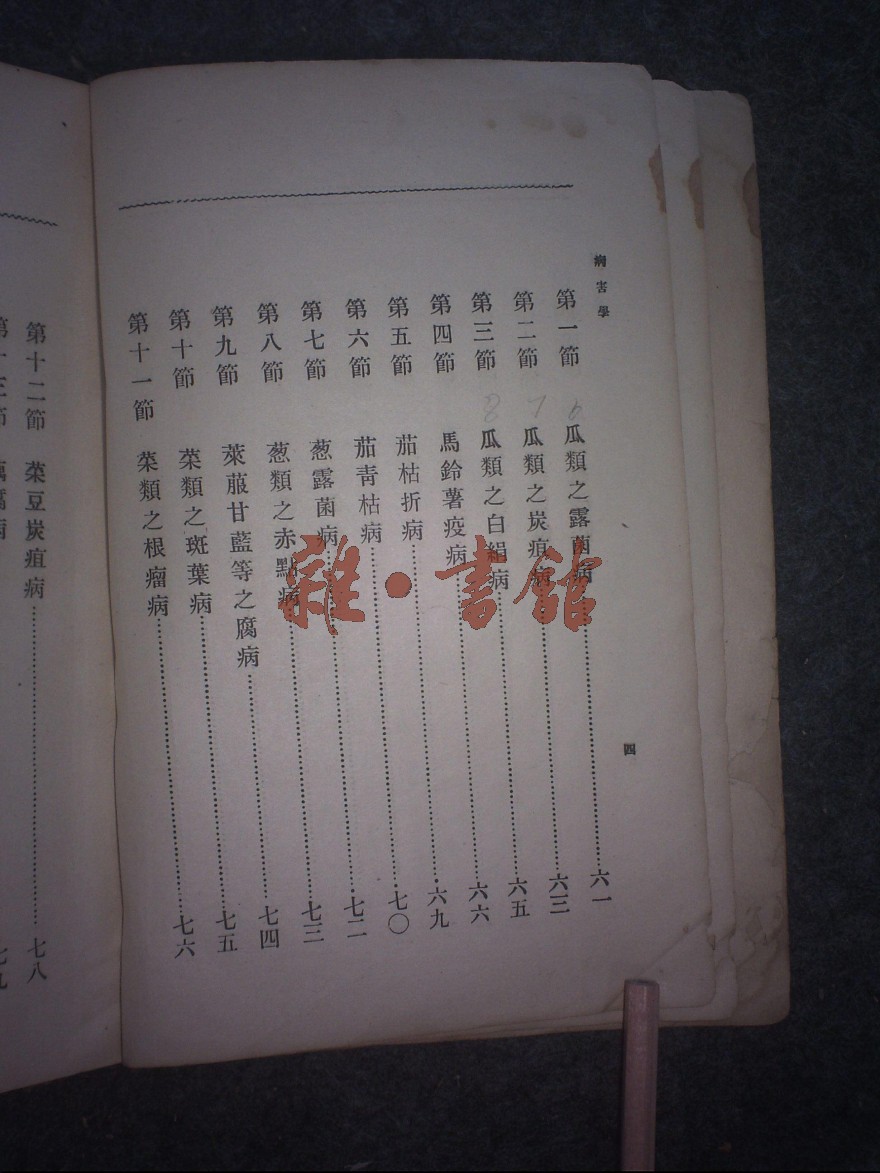 病害學
四
第一節 瓜類之露菌病 六一
第二節 瓜類之炭疽病 六三
第三節 瓜類之白絹病 六五
第四節 馬鈴薯疫病 六六
第五節 茄枯折病 六九
第六節 茄靑枯病 七〇
第七節 葱露菌病 七二
第八節 葱類之赤點病 七三
第九節 萊菔甘藍等之腐病 七四
第十節 菜類之斑葉病 七五
第十一節 菜類之根瘤病 七六
第十二節 菜豆炭疽病 七八
6
7
8
雜·書館